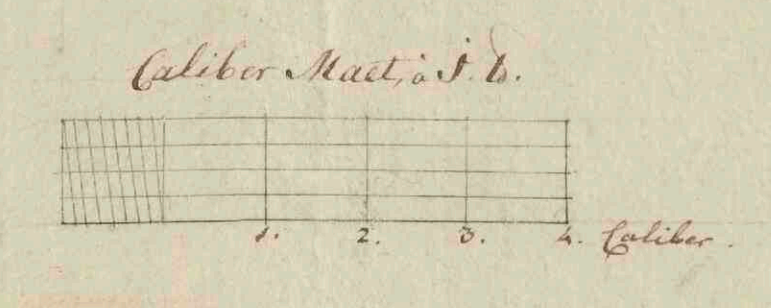 Caliber Maet, à
1. 2. 3. 4. Caliber.